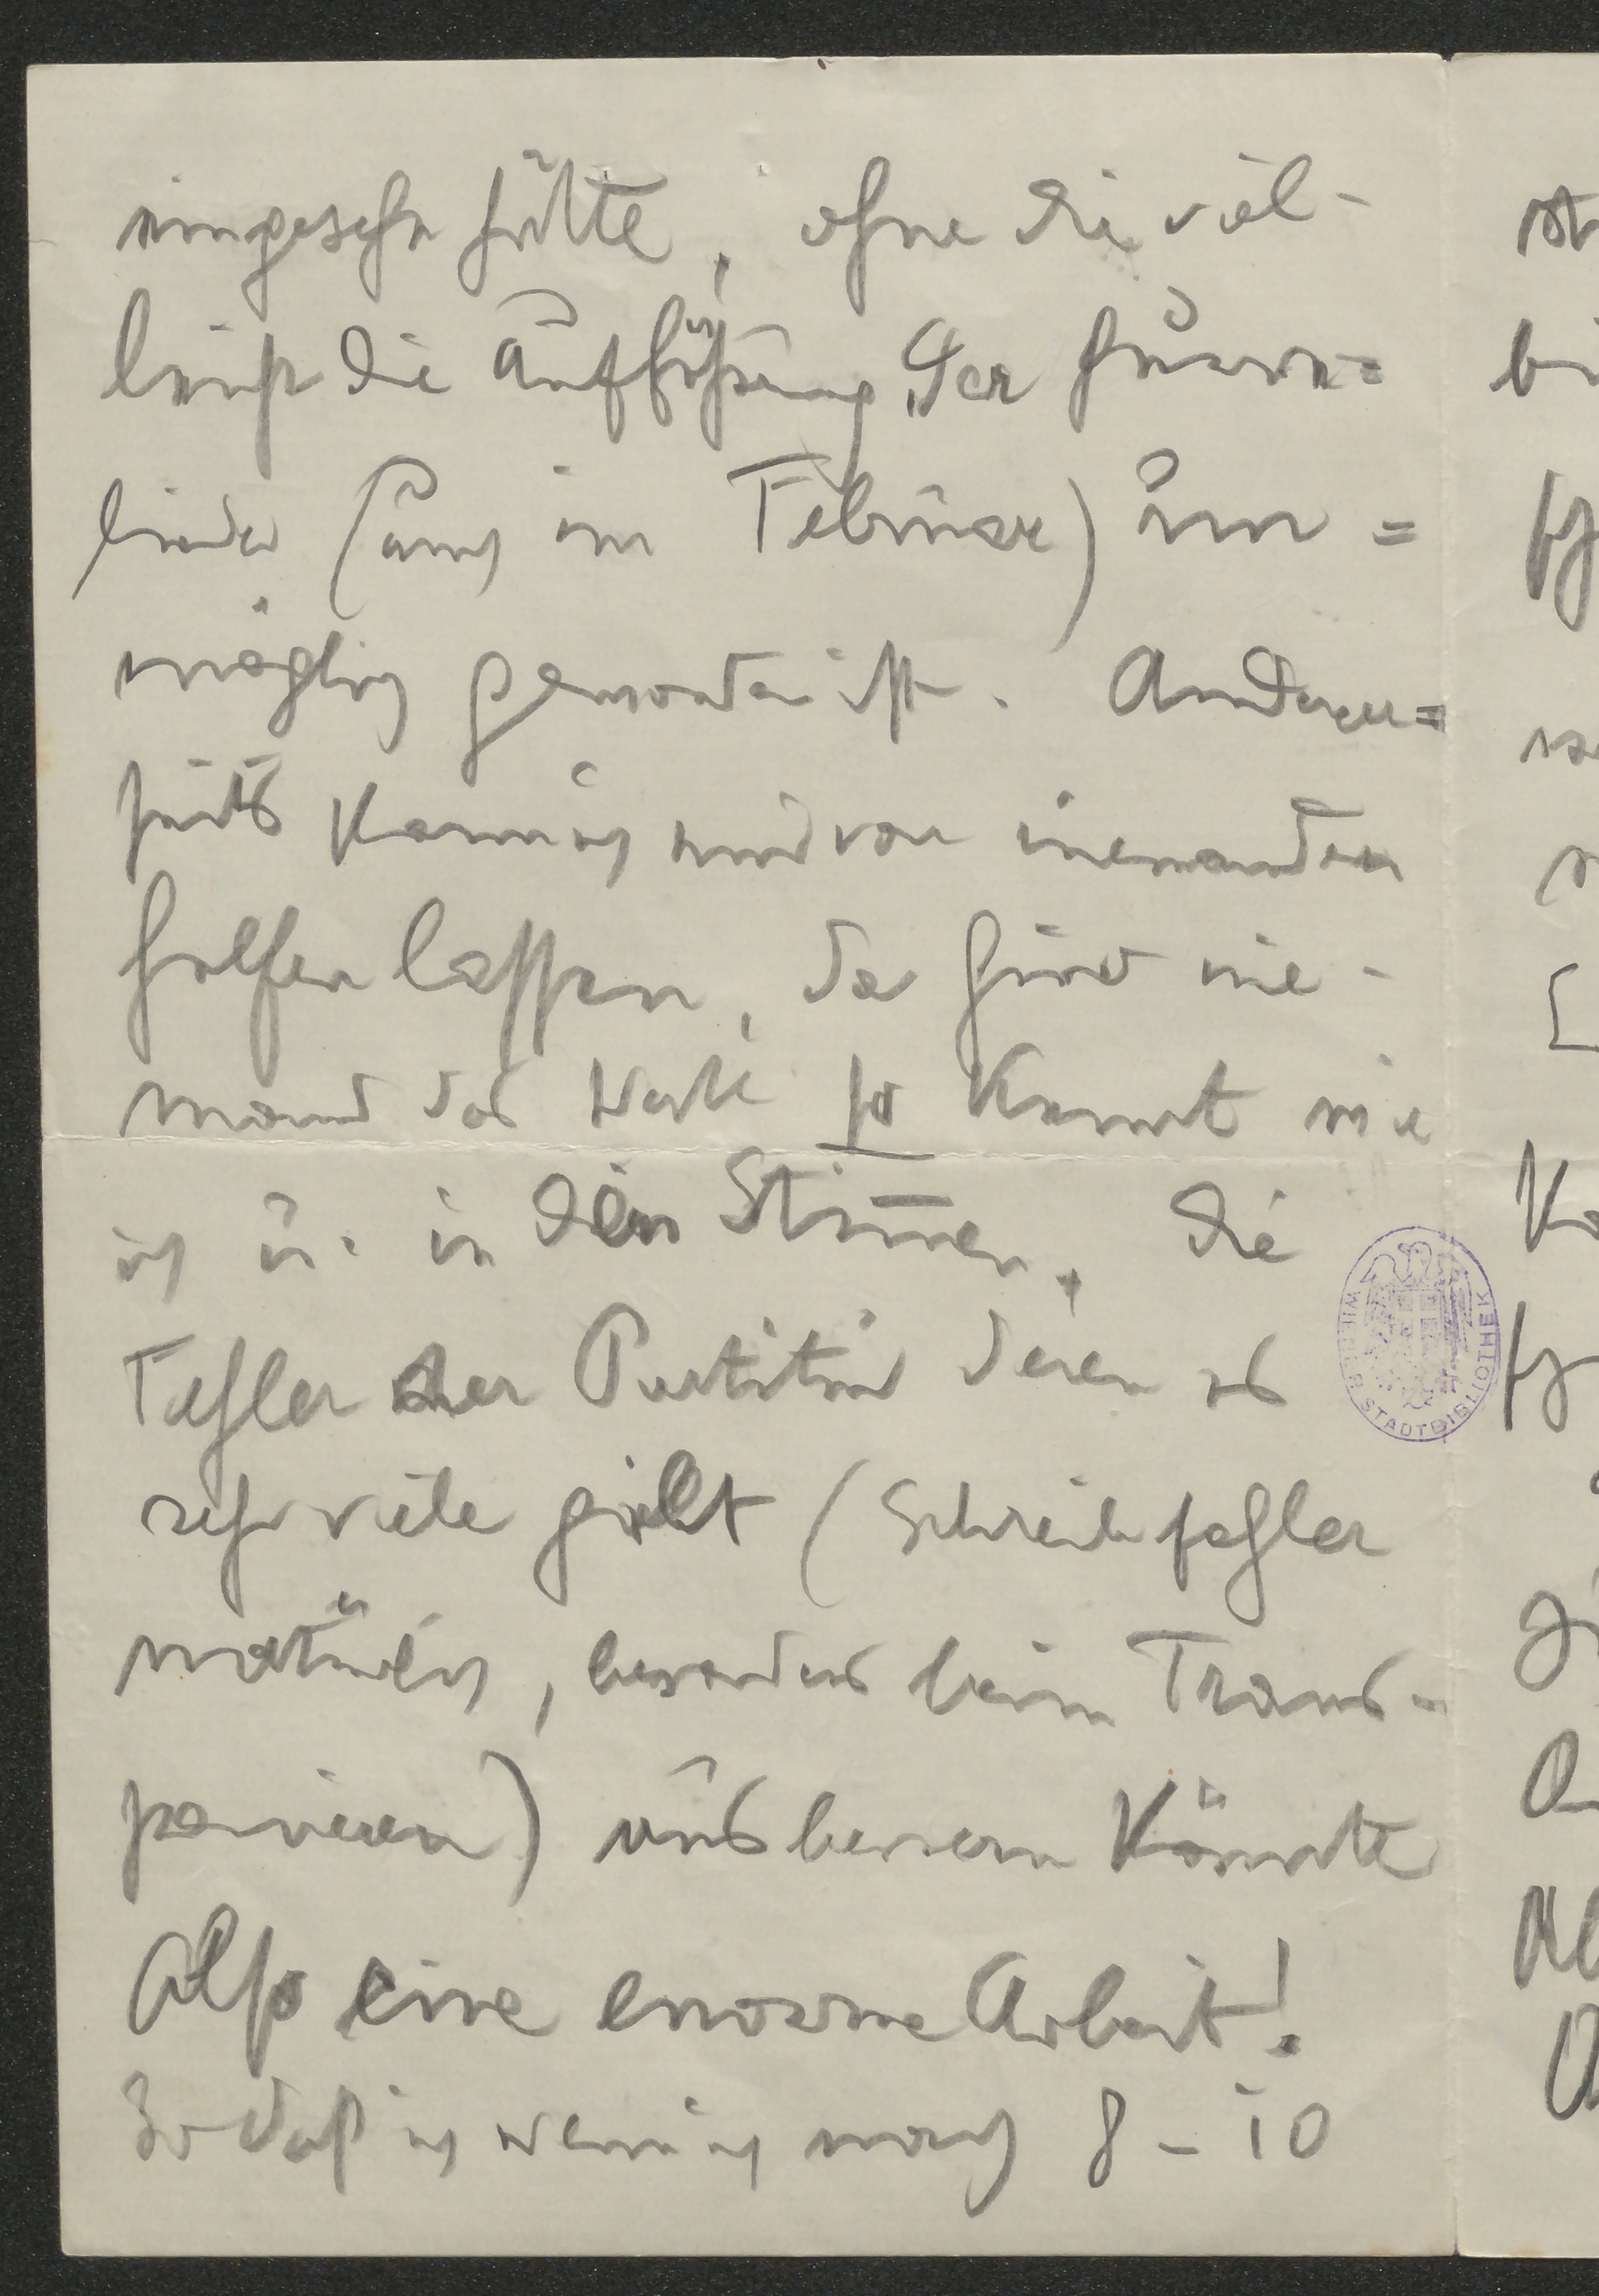 eingesehn hätte, ohne die viel-
leicht die Aufführung der
lieder (auch im Februar) un=
möglich geworden ist. Anderer=
seits kann ich mir von niemanden
helfen lassen, da hier nie-
mand das Werk so kennt wie
ich u. in den Stimmen, die
Fehler der Partitur deren es
sehr viele giebt (Schreibfehler
natürlich, besonders beim Trans-
ponieren) ausbessern könnte
Also eine enorme Arbeit!
So daß ich wenn ich nach 8-10
WIENER STADTBIBLIOTHEK